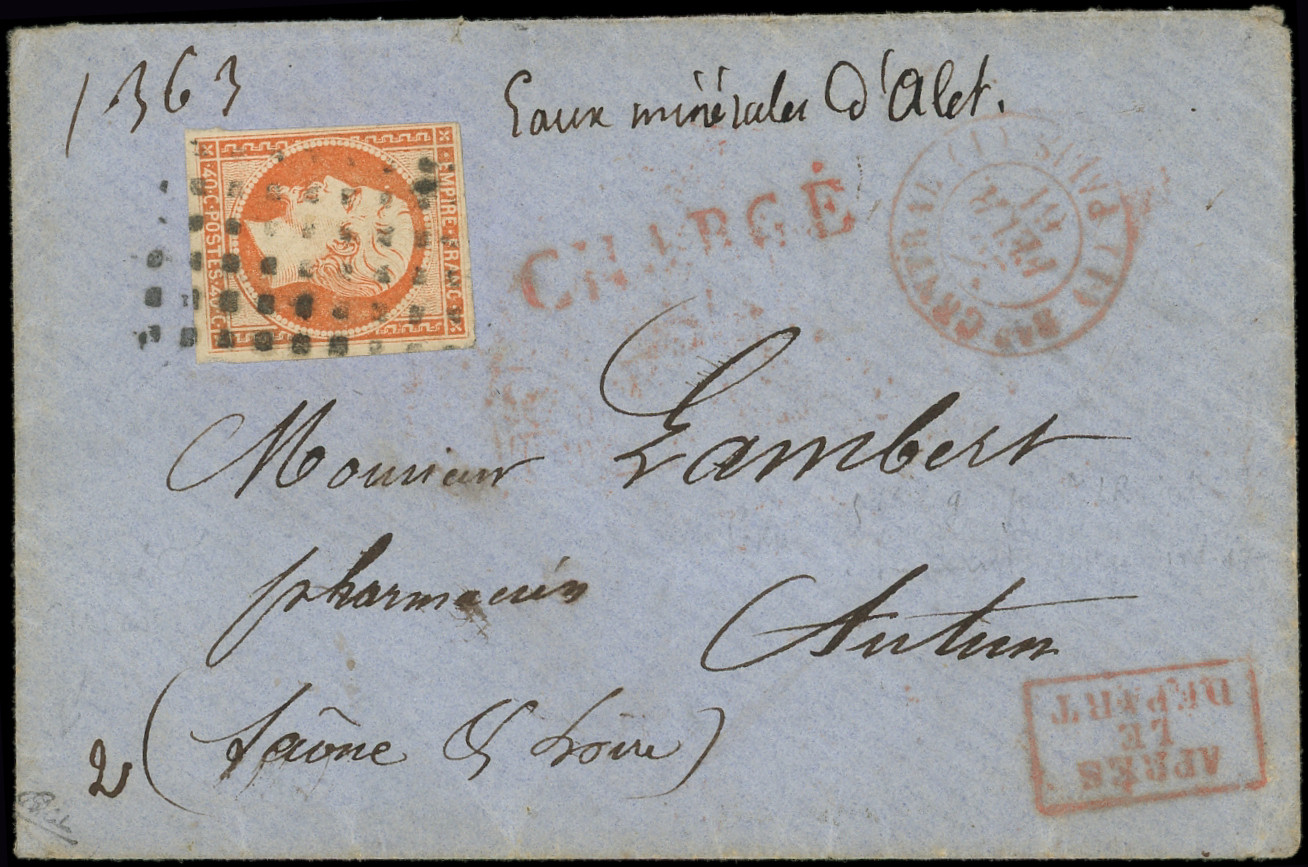 1363
Eaux minérales d'Alet.
EMPIRE FRANC
40·C·POSTES·40·C
CHARGÉ
PARIS
Monsieur Lambert
pharmacien
Autun
2 (Saône & Loire)
APRÈS
LE
DÉPART